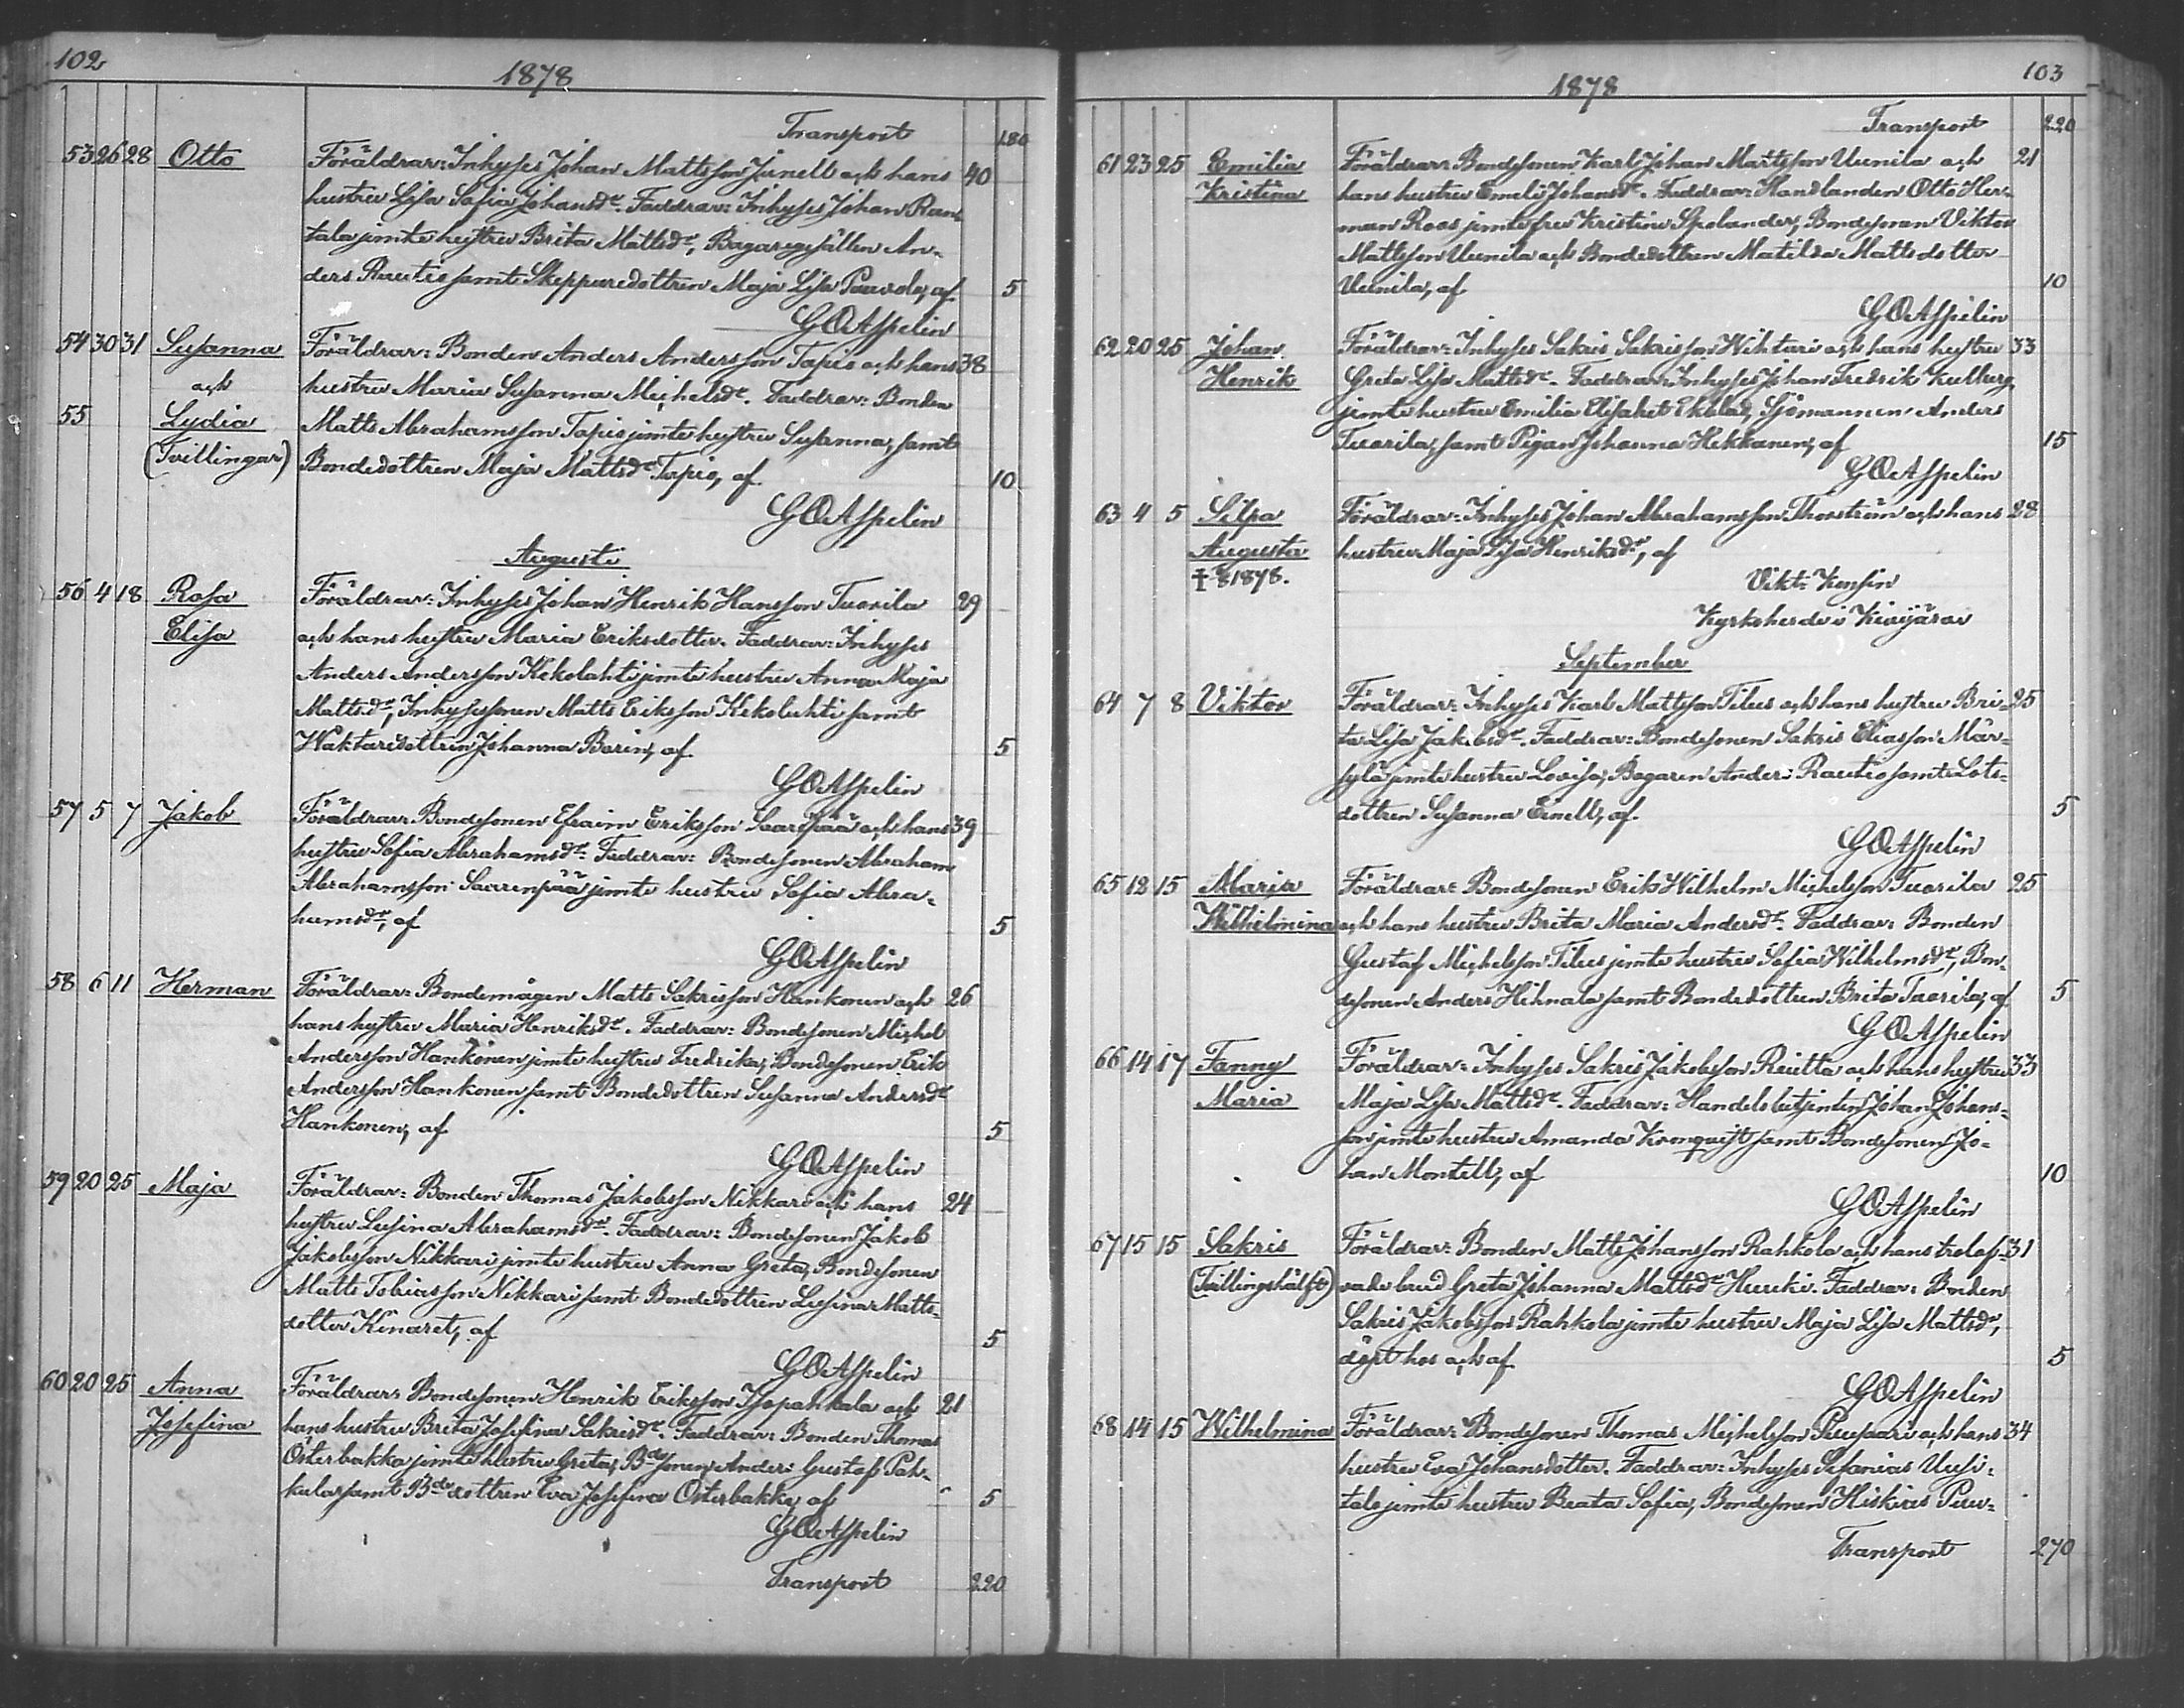 102
1878
Transport 180
53 26 28 Otto Föräldrar: Inhyses Johan Mattsson Junell och hans 40
hustru Lisa Sofia Johansdr. Faddrar: Inhyses Johan Ran-
tala jemte hustru Brita Mattsdr, Bagaregesällen An-
ders Rautio samt Skepparedottren Maja Lisa, af 5
GOAspelin
54 30 31 Susanna Föräldrar: Bonden Anders Andersson Tapio och hans 38
och hustru Maria Susanna Michelsdr. Faddrar: Bonden
55 Lydia Matts Abrahamsson Tapio jemte hustru Susanna, samt
(Tvillingar) Bondedottren Maja Mattsdr Tapio, af 10
GOAspelin
Augusti
56 4 18 Rosa Föräldrar: Inhyses Johan Henrik Hansson Tuorila 29
Elisa och hans hustru Maria Eriksdotter. Faddrar: Inhyses
Anders Andersson Kekolahti jemte hustru Anna Maja
Mattsdr, Inhysessonen Matts Eriksson Kekolahti samt
Waktaredottren Johanna Borin, af 5
GOAspelin
57 5 7 Jakob Föräldrar: Bondesonen Efraim Eriksson Saarenpää och hans 39
hustru Sofia Abrahamsdr. Faddrar: Bondesonen Abraham
Abrahamsson Saarenpää jemte hustru Sofia Abra-
hamsdr, af 5
GOAspelin
58 6 11 Herman Föräldrar: Bondemågen Matts Sakrisson Hankonen och 26
hans hustru Maria Henriksdr. Faddrar: Bondesonen Michel
Andersson Hankonen jemte hustru Fredrika, Bondesonen Erik
Andersson Hankonen samt Bondedottren Susanna Andersdr
Hankonen, af 5
GOAspelin
59 20 25 Maja Föräldrar: Bonden Thomas Jakobsson Nikkari och hans 24
hustru Lusina Abrahamsdr. Faddrar: Bondesonen Jakob
Jakobsson Nikkari jemte hustru Anna Greta, Bondesonen
Matts Tobiasson Nikkari samt Bondedottren Lusina Matts-
dotter Kinaret, af 5
GOAspelin
60 20 25 Anna Föräldrar: Bondesonen Henrik Eriksson Isopahkala och 21
Josefina hans hustru Brita Josefina Sakrisdr. Faddrar: Bonden Thomas
Österbakka jemte hustru Greta, Bdesonen Anders Gustaf Pah-
kala samt Bdedottren Eva Josefina Österbakka, af 5
GOAspelin
Transport 220
103
1878
Transport 220
61 23 25 Emilia Föräldrar: Bondesonen Karl Johan Mattsson Uunila och 21
Kristina hans hustru Emeli Johansdr. Faddrar: Handlanden Otto Her-
man Roos jemte fru Kristina Spolander, Bondesonen Viktor
Mattsson Uunila och Bondedottren Matilda Mattsdotter
Uunila, af 10
GOAspelin
62 20 25 Johan Föräldrar: Inhyses Sakris Sakrisson Wihtari och hans hustru 33
Henrik Greta Lisa Mattsdr. Faddrar: Inhyses Johan Fredrik Kullberg
jemte hustru Emilia Elisabet Ekblad, Sjömannen Anders
Tuorila, samt Pigan Johanna Hekkanen, af 15
GOAspelin
63 4 5 Silpa Föräldrar: Inhyses Johan Abrahamsson Thorström och hans 28
Augusta hustru Maja Lisa Henriksdr, af
† 1878. Vikt:
Kyrkoherde i
September
64 7 8 Viktor Föräldrar: Inhyses Karl Mattsson Tilus och hans hustru Bri- 25
ta Lisa Jakobsdr. Faddrar: Bondesonen Sakris Eliasson Mär-
sylä jemte hustru Lovisa, Bagaren Anders Rautio samt Lots-
dottren Susanna Einell, af 5
GOAspelin
65 12 15 Maria Föräldrar: Bondesonen Erik Wilhelm Michelsson Tuorila 25
Wilhelmina och hans hustru Brita Maria Andersdr. Faddrar: Bonden
Gustaf Michelsson Tilus jemte hustru Sofia Wilhelmsdr, Bon-
desonen Anders Hihnala samt Bondedottren Brita Tuorila, af 5
GOAspelin
66 14 17 Fanny Föräldrar: Inhyses Sakris Jakobsson Riutta och hans hustru 33
Maria Maja Lisa Mattsdr. Faddrar: Handelsbetjenten Johan Johans-
son jemte hustru Amanda Kronqvist samt Bondesonen Jo-
han Montell, af 10
GOAspelin
67 15 15 Sakris Föräldrar: Bonden Matts Johansson Rahkola och hans trolof- 31
(Tvillingshälft) vade brud Greta Johanna Mattsdr Huuki. Faddrar: Bonden
Sakris Jakobsson Rahkola jemte hustru Maja Lisa Mattsdr,
döpt hos och af 5
GOAspelin
68 14 15 Wilhelmina Föräldrar: Bondesonen Thomas Michelsson Puusaari och hans 34
hustru Eva Johansdotter. Faddrar: Inhyses Sefanias Uusi-
talo jemte hustru Beata Sofia, Bondesonen Hiskias Puu-
Transport 270